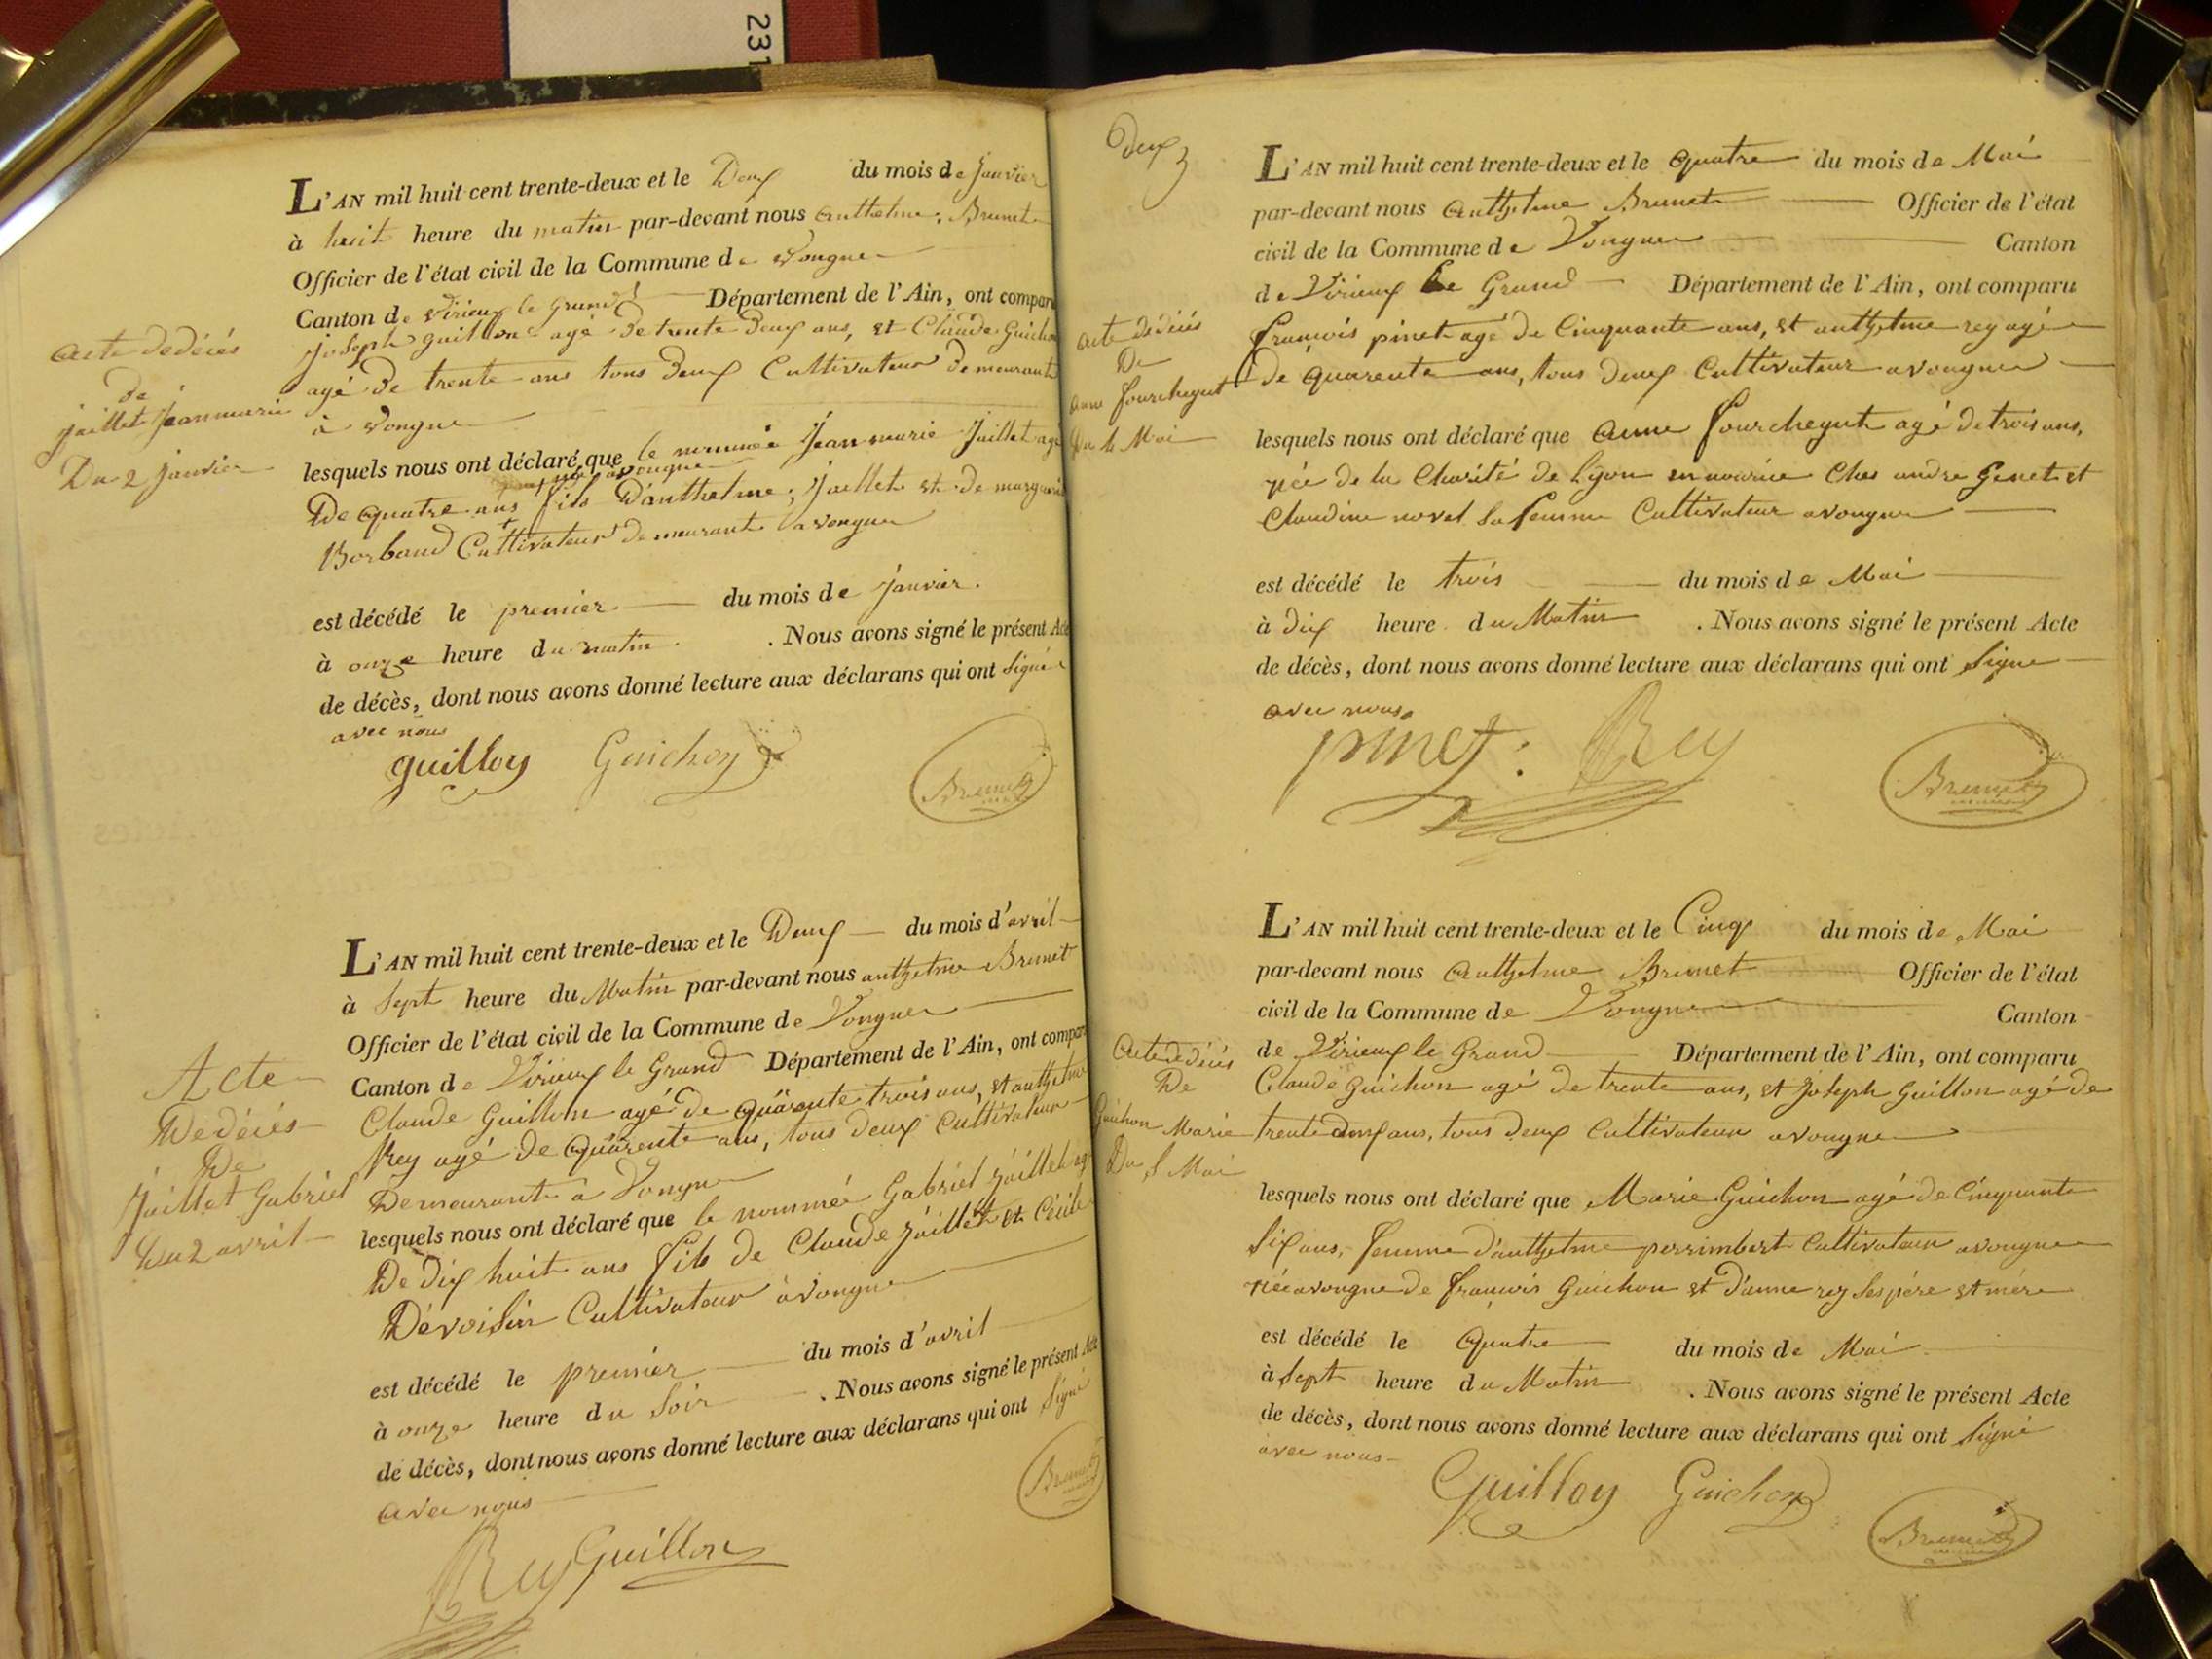 231
L'AN mil huit cent trente-deux et le Deux du mois de Janvier
à huit heure du matin par-devant nous anthelme Brunet
Officier de l'état civil de la Commune de vongne
Canton de virieux le grand Département de l'Ain, ont comparu
Joseph guillon agé de trente deux ans, et Claude Guichon
agé de trente ans tous deux Cultivateur demeurant
à vongne
acte dedécés
de
jaillet Jeanmarie
Du 2 janvier
lesquels nous ont déclaré que le nommée Jean marie Jaillet agé
avongne
De quatre ans fils D'anthelme jaillet et de
Borband Cultivateur demeurant avongne
est décédé le premier du mois de janvier.
à onze heure du matin . Nous avons signé le présent Acte
de décès, dont nous avons donné lecture aux déclarans qui ont signé
avec nous
guilloy Guichon Brunet
L'AN mil huit cent trente-deux et le Deux du mois d'avril
à sept heure du Matin par-devant nous anthelme Brunet
Officier de l'état civil de la Commune de Vongne
Canton de Virieux le Grand Département de l'Ain, ont comparu
Claude Guillon agé de quarente trois ans, et anthelme
Rey agé de quarente ans, tous deux Cultivateur
Demeurant à Vongne
Acte
De décés
De
Jaillet Gabriel
Du 2 avril
lesquels nous ont déclaré que le nommée Gabriel jaillet
De dix huit ans fils de Claude jaillet et Cécile
Dévoisin Cultivateur àvongne
est décédé le premier du mois d'avril
à onze heure du Soir . Nous avons signé le présent Acte
de décès, dont nous avons donné lecture aux déclarans qui ont signé
avec nous
Rey Guillon Brunet
Deux
L'AN mil huit cent trente-deux et le quatre du mois de Mai
par-devant nous anthelme Brunet Officier de l'état
civil de la Commune de Vongne Canton
de Virieux le Grand Département de l'Ain, ont comparu
françois pinet agé de Cinquante ans, et anthelme rey agé
de quarente ans, tous deux Cultivateur avongne
acte dédécés
De
anne fourcheyut
Du 4 Mai
lesquels nous ont déclaré que anne fourcheyut agé de trois ans,
née de la Charité de Lyon en nourice Ches andre Genet et
Claudine novel sa femme Cultivateur avongne
est décédé le trois du mois de Mai
à dix heure du Matin . Nous avons signé le présent Acte
de décès, dont nous avons donné lecture aux déclarans qui ont signe
avec nous.
pinet Rey Brunet
L'AN mil huit cent trente-deux et le Cinq du mois de Mai
par-devant nous anthelme Brunet Officier de l'état
civil de la Commune de Vongne Canton
de Virieux le Grand Département de l'Ain, ont comparu
Claude guichon agé de trente ans, et Joseph Guillon agé de
trente deux ans, tous deux Cultivateur avongne
Acte dedécés
De
Guichon Marie
Du 5 Mai
lesquels nous ont déclaré que Marie Guichon agé de Cinquante
Six ans, femme d'anthelme perrimbert Cultivateur avongne
née avongne de françois Guichon et d'anne rey ses père et mère
est décédé le quatre du mois de Mai
à Sept heure du Matin . Nous avons signé le présent Acte
de décès, dont nous avons donné lecture aux déclarans qui ont signé
avec nous
Guilloy Guichon Brunet